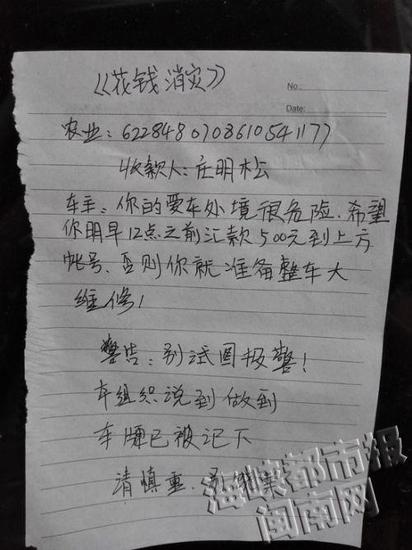 《花钱消灾》
No.
Date:
农业：6228480708610541177
收款人：庄明松
车主：你的爱车处境很危险、希望
你明早12点之前汇款500元到上方
帐号、否则你就准备整车大
维修！
警告：别试图报警！
车组织说到做到
车牌已被记下
请慎重、别
海峡都市报
闽南网